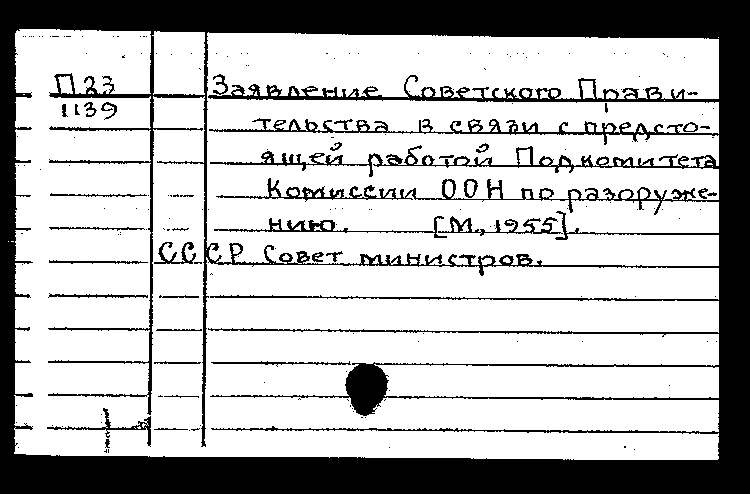 П23 Заявление Советского Прави-
1139
тельства в связи с предсто-
ящей работой Подкомитета
Комиссии ООН по разоруже-
нию. [М., 1955].
СССР Совет министров.